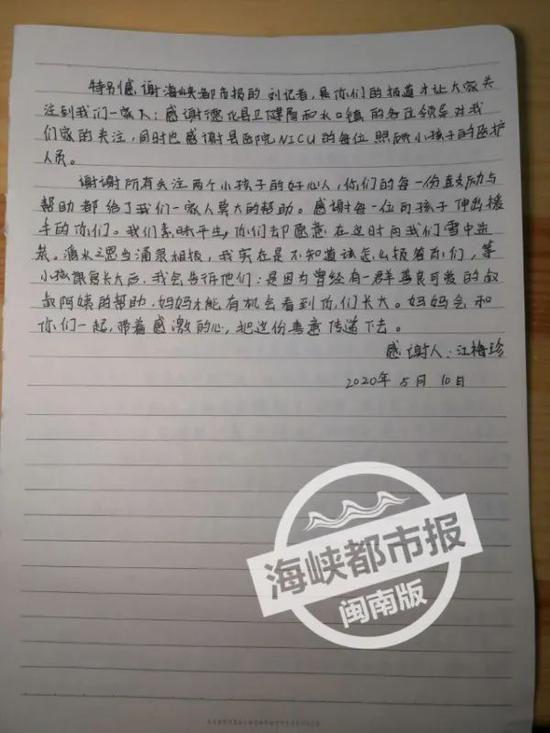 特别感谢海峡都市报的刘记者,是你们的报道才让大家关
注到我们一家人;感谢德化县卫健局和水口镇的各位领导对我
们家的关注,同时也感谢县医院NICU的每位照顾小孩子的医护
人员。
谢谢所有关注两个小孩子的好心人,你们的每一份鼓励与
帮助都给了我们一家人莫大的帮助。感谢每一位向孩子伸出援
手的你们。我们素昧平生,你们却愿意在这时向我们雪中送
炭。滴水之恩当涌泉相报,我实在是不知道该怎么报答你们,等
小孩跟宫长大后,我会告诉他们:是因为曾经有一群善良可爱的叔
叔阿姨的帮助,妈妈才能有机会看到你们长大。妈妈会和
你们一起,带着感激的心,把这份善意传递下去。
感谢人:江梅珍
2020年5月10日
海峡都市报
闽南版